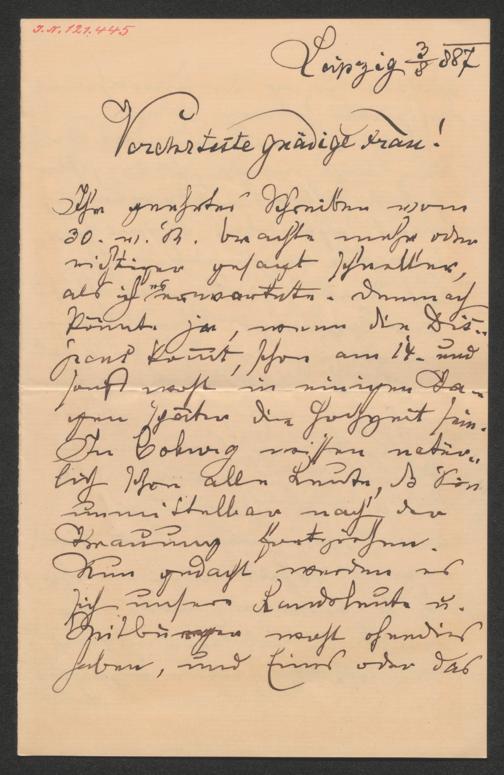 I.N. 121.445
Leipzig 3/8 887
Verehrteste gnädige Frau!
Ihr geehrtes Schreiben vom
30. v. M. brachte mehr oder
richtiger gesagt schneller,
als ich es erwartete. Demnach
könnte ja, wenn die Dis-
pens kommt, schon am 14. und
sonst wohl in einigen Ta-
gen später die Hochzeit sein.
In Coburg wissen natür-
lich schon alle Leute, daß Sie
unmittelbar nach der
Trauung fortziehen.
Nun gedacht werden es
sich unsere Landsleute u.
Mitbürger wohl ohnedies
haben, und Eines oder das